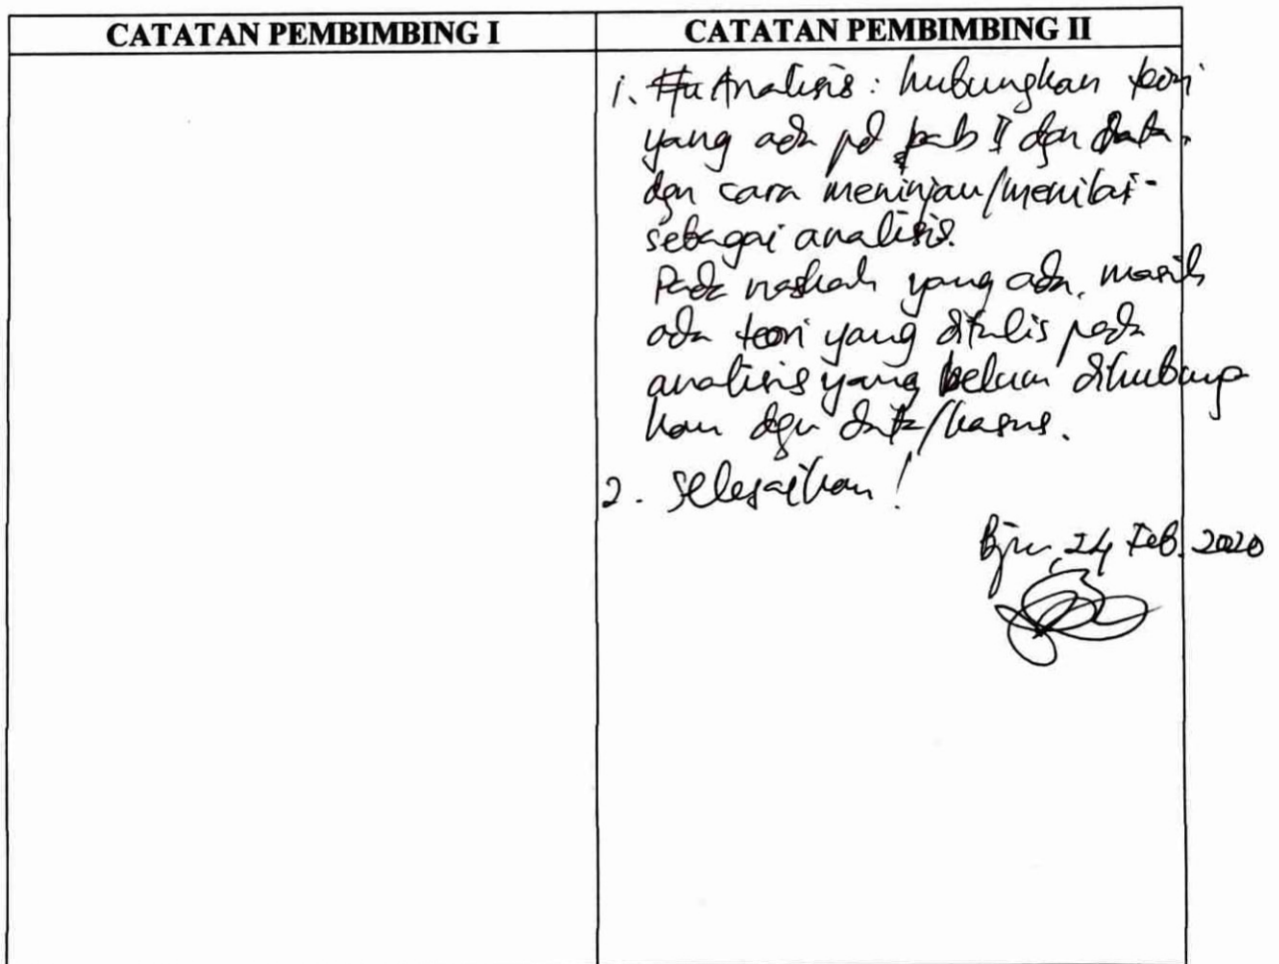 CATATAN PEMBIMBING I
CATATAN PEMBIMBING II
1. Analisis : hubungkan teori
yang ada pd bab II dgn data.
dgn cara meninjau/menilai-
sebagai analisis.
Pada naskah yang ada, masih
ada teori yang ditulis pada
analisis yang belum dihubung
kan dgn data/kasus.
2. Selesaikan !
24 Feb. 2020